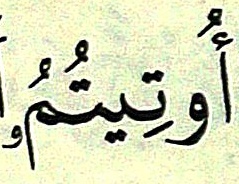 أُوتِيتُمُۥ